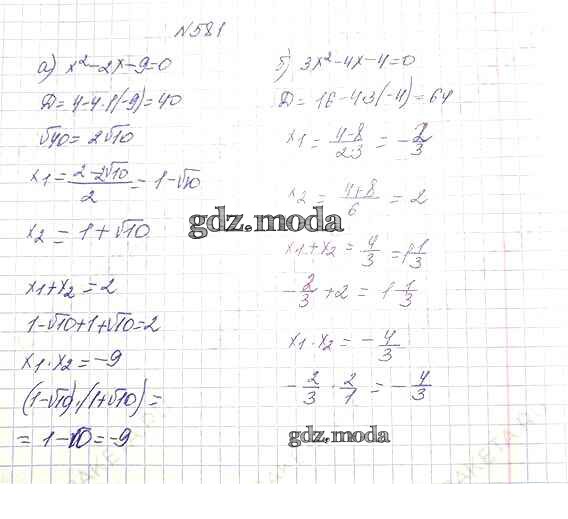 №581
а) x²-2x-9=0
D=4-4·1·(-9)=40
√40=2√10
x1=(2-2√10)/2=1-√10
x2=1+√10
x1+x2=2
1-√10+1+√10=2
x1·x2=-9
(1-√10)·(1+√10)=
=1-10=-9
б) 3x²-4x-4=0
D=16-4·3·(-4)=64
x1=(4-8)/(2·3)=-2/3
x2=(4+8)/6=2
x1+x2=4/3=1 1/3
-2/3+2=1 1/3
x1·x2=-4/3
-2/3·2/1=-4/3
gdz.moda
gdz.moda